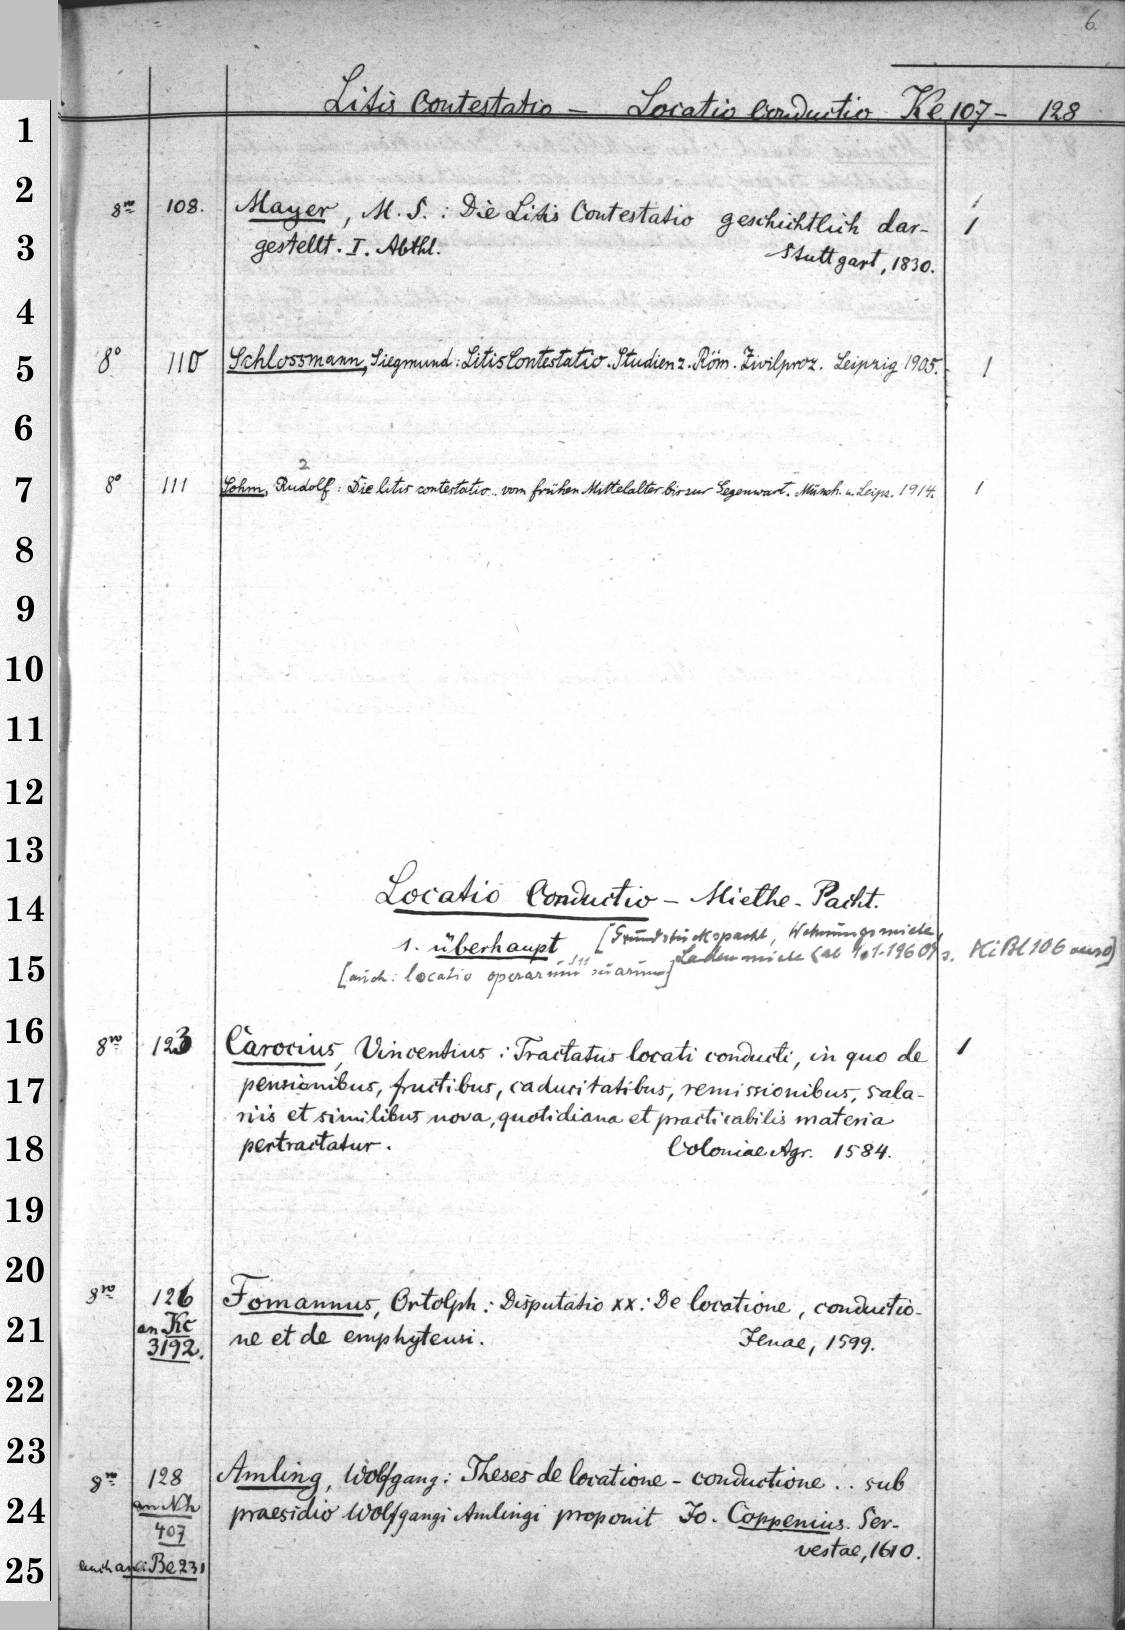 6
Litis Contestatio — Locatio Conductio Ke 107 - 128
8ᵛᵒ 108. Mayer, M. S. : Die Litis Contestatio geschichtlich dar- 1
gestellt. I. Abthl. Stuttgart, 1830.
8° 110 Schlossmann, Siegmund: Litis Contestatio. Studien z. Röm. Zivilproz. Leipzig 1905. 1
2
8° 111 Sohm, Rudolf: Die litis contestatio.. vom frühen Mittelalter bis zur Gegenwart. Münch. u. Leipz. 1914. 1
Locatio Conductio - Miethe - Pacht.
1. überhaupt [Grundstückspacht, Wohnungsmiete,
Ladenmiete (ab 1.1.1960) s.
[auch: locatio operarum suarum]
8ᵛᵒ 123 Carocius, Vincentius : Tractatus locati conducti, in quo de 1
pensionibus, fructibus, caducitatibus, remissionibus, sala-
riis et similibus nova, quotidiana et practicabilis materia
pertractatur. Coloniae Agr. 1584.
8ᵛᵒ 126 Fomannus, Ortolph : Disputatio XX : De locatione, conductio-
an Kc
3192. ne et de emphyteusi. Jenae, 1599.
8ᵛᵒ 128 Amling, Wolfgang : Theses de locatione - conductione .. sub
an Nh praesidio Wolfgangi Amlingi proponit Jo. Coppenius. Ser-
407 vestae, 1610.
auch an: Be 231